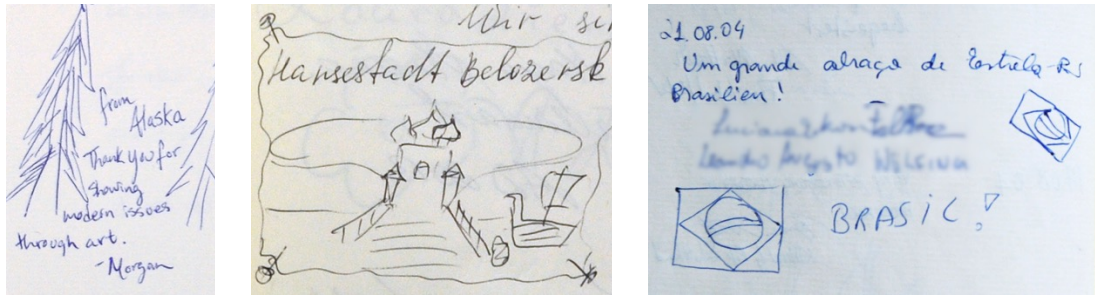 from
Alaska
Thank you for
showing
modern issues
through art.
-Morgan
Wir
Hansestadt Belozersk
21.08.04
Um grande abraço de Estrela-RS
Brasilien!
BRASIL!